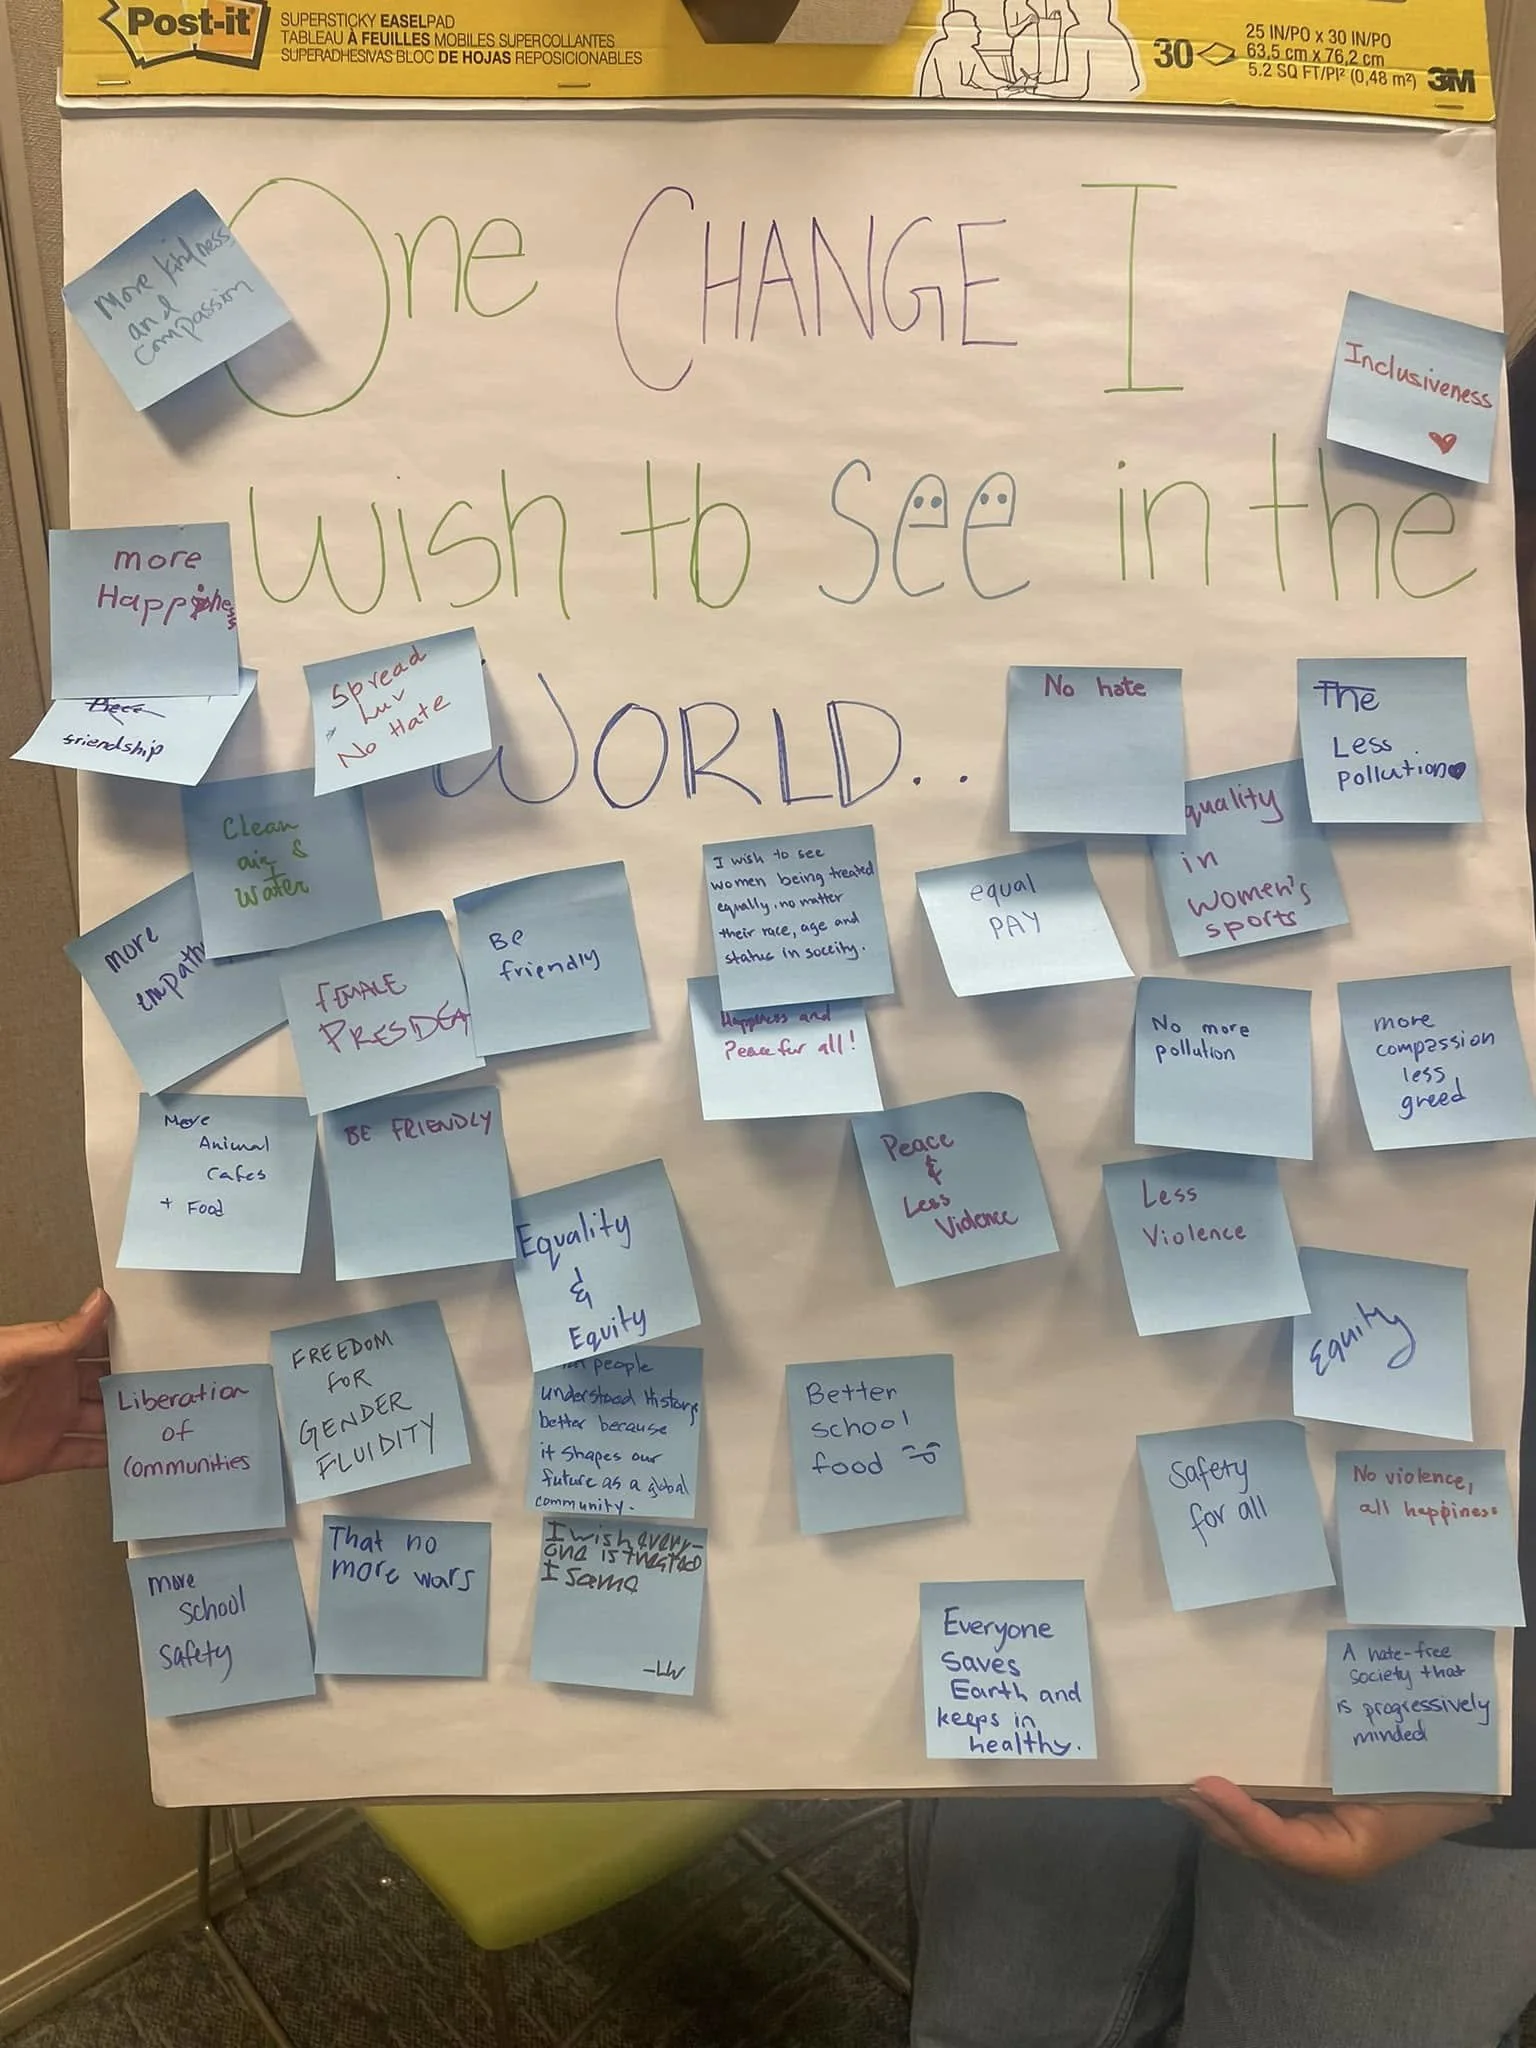 Post-it
SUPERSTICKY EASELPAD
TABLEAU À FEUILLES MOBILES SUPERCOLLANTES
SUPERADHESIVAS BLOC DE HOJAS REPOSICIONABLES
30
25 IN/PO x 30 IN/PO
63,5 cm x 76,2 cm
5.2 SQ FT/PI² (0,48 m²)
3M
One CHANGE I
wish to see in the
WORLD...
More kindness
and
compassion
Inclusiveness
more
Happiness
friendship
Spread
Luv
No Hate
No hate
The
Less
pollution
Clean
air &
water
quality
in
women's
sports
I wish to see
women being treated
equally. no matter
their race, age and
status in soceity.
equal
PAY
more
empathy
FEMALE
PRESIDEN
BE
friendly
Happiness and
Peace for all!
No more
pollution
more
compassion
less
greed
More
Animal
Cafes
+ Food
BE FRIENDLY
Peace
&
Less
Violence
Less
Violence
Equality
&
Equity
Equity
FREEDOM
FOR
GENDER
FLUIDITY
Liberation
of
Communities
people
understood History
better because
it shapes our
future as a global
community.
Better
school
food
Safety
for all
No violence,
all happiness
more
school
safety
That no
more wars
I wish every-
one is treated
I same
-LW
Everyone
saves
Earth and
keeps in
healthy.
A hate-free
society that
is progressively
minded